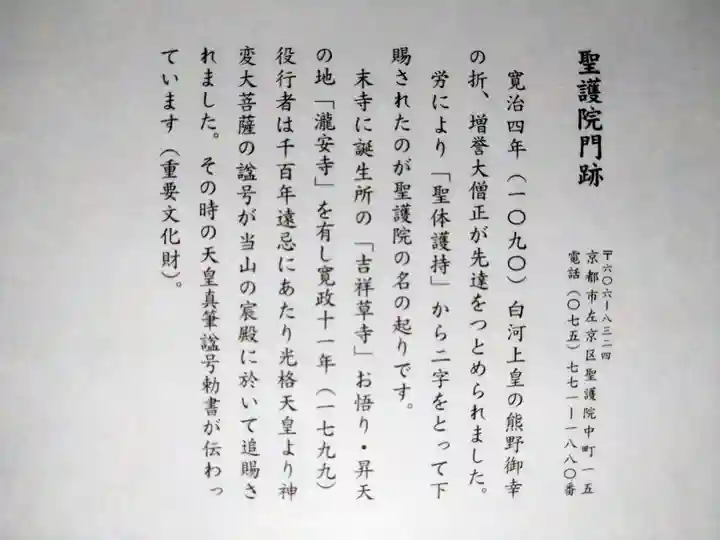 聖護院門跡
〒六〇六ー八三二四
京都市左京区聖護院中町一五
電話（〇七五）七七一ー一八八〇番
寛治四年（一〇九〇）白河上皇の熊野御幸
の折、増誉大僧正が先達をつとめられました。
労により「聖体護持」から二字をとって下
賜されたのが聖護院の名の起りです。
末寺に誕生所の「吉祥草寺」お悟り・昇天
の地「瀧安寺」を有し寛政十一年（一七九九）
役行者は千百年遠忌にあたり光格天皇より神
変大菩薩の諡号が当山の宸殿に於いて追賜さ
れました。その時の天皇真筆諡号勅書が伝わっ
ています（重要文化財）。